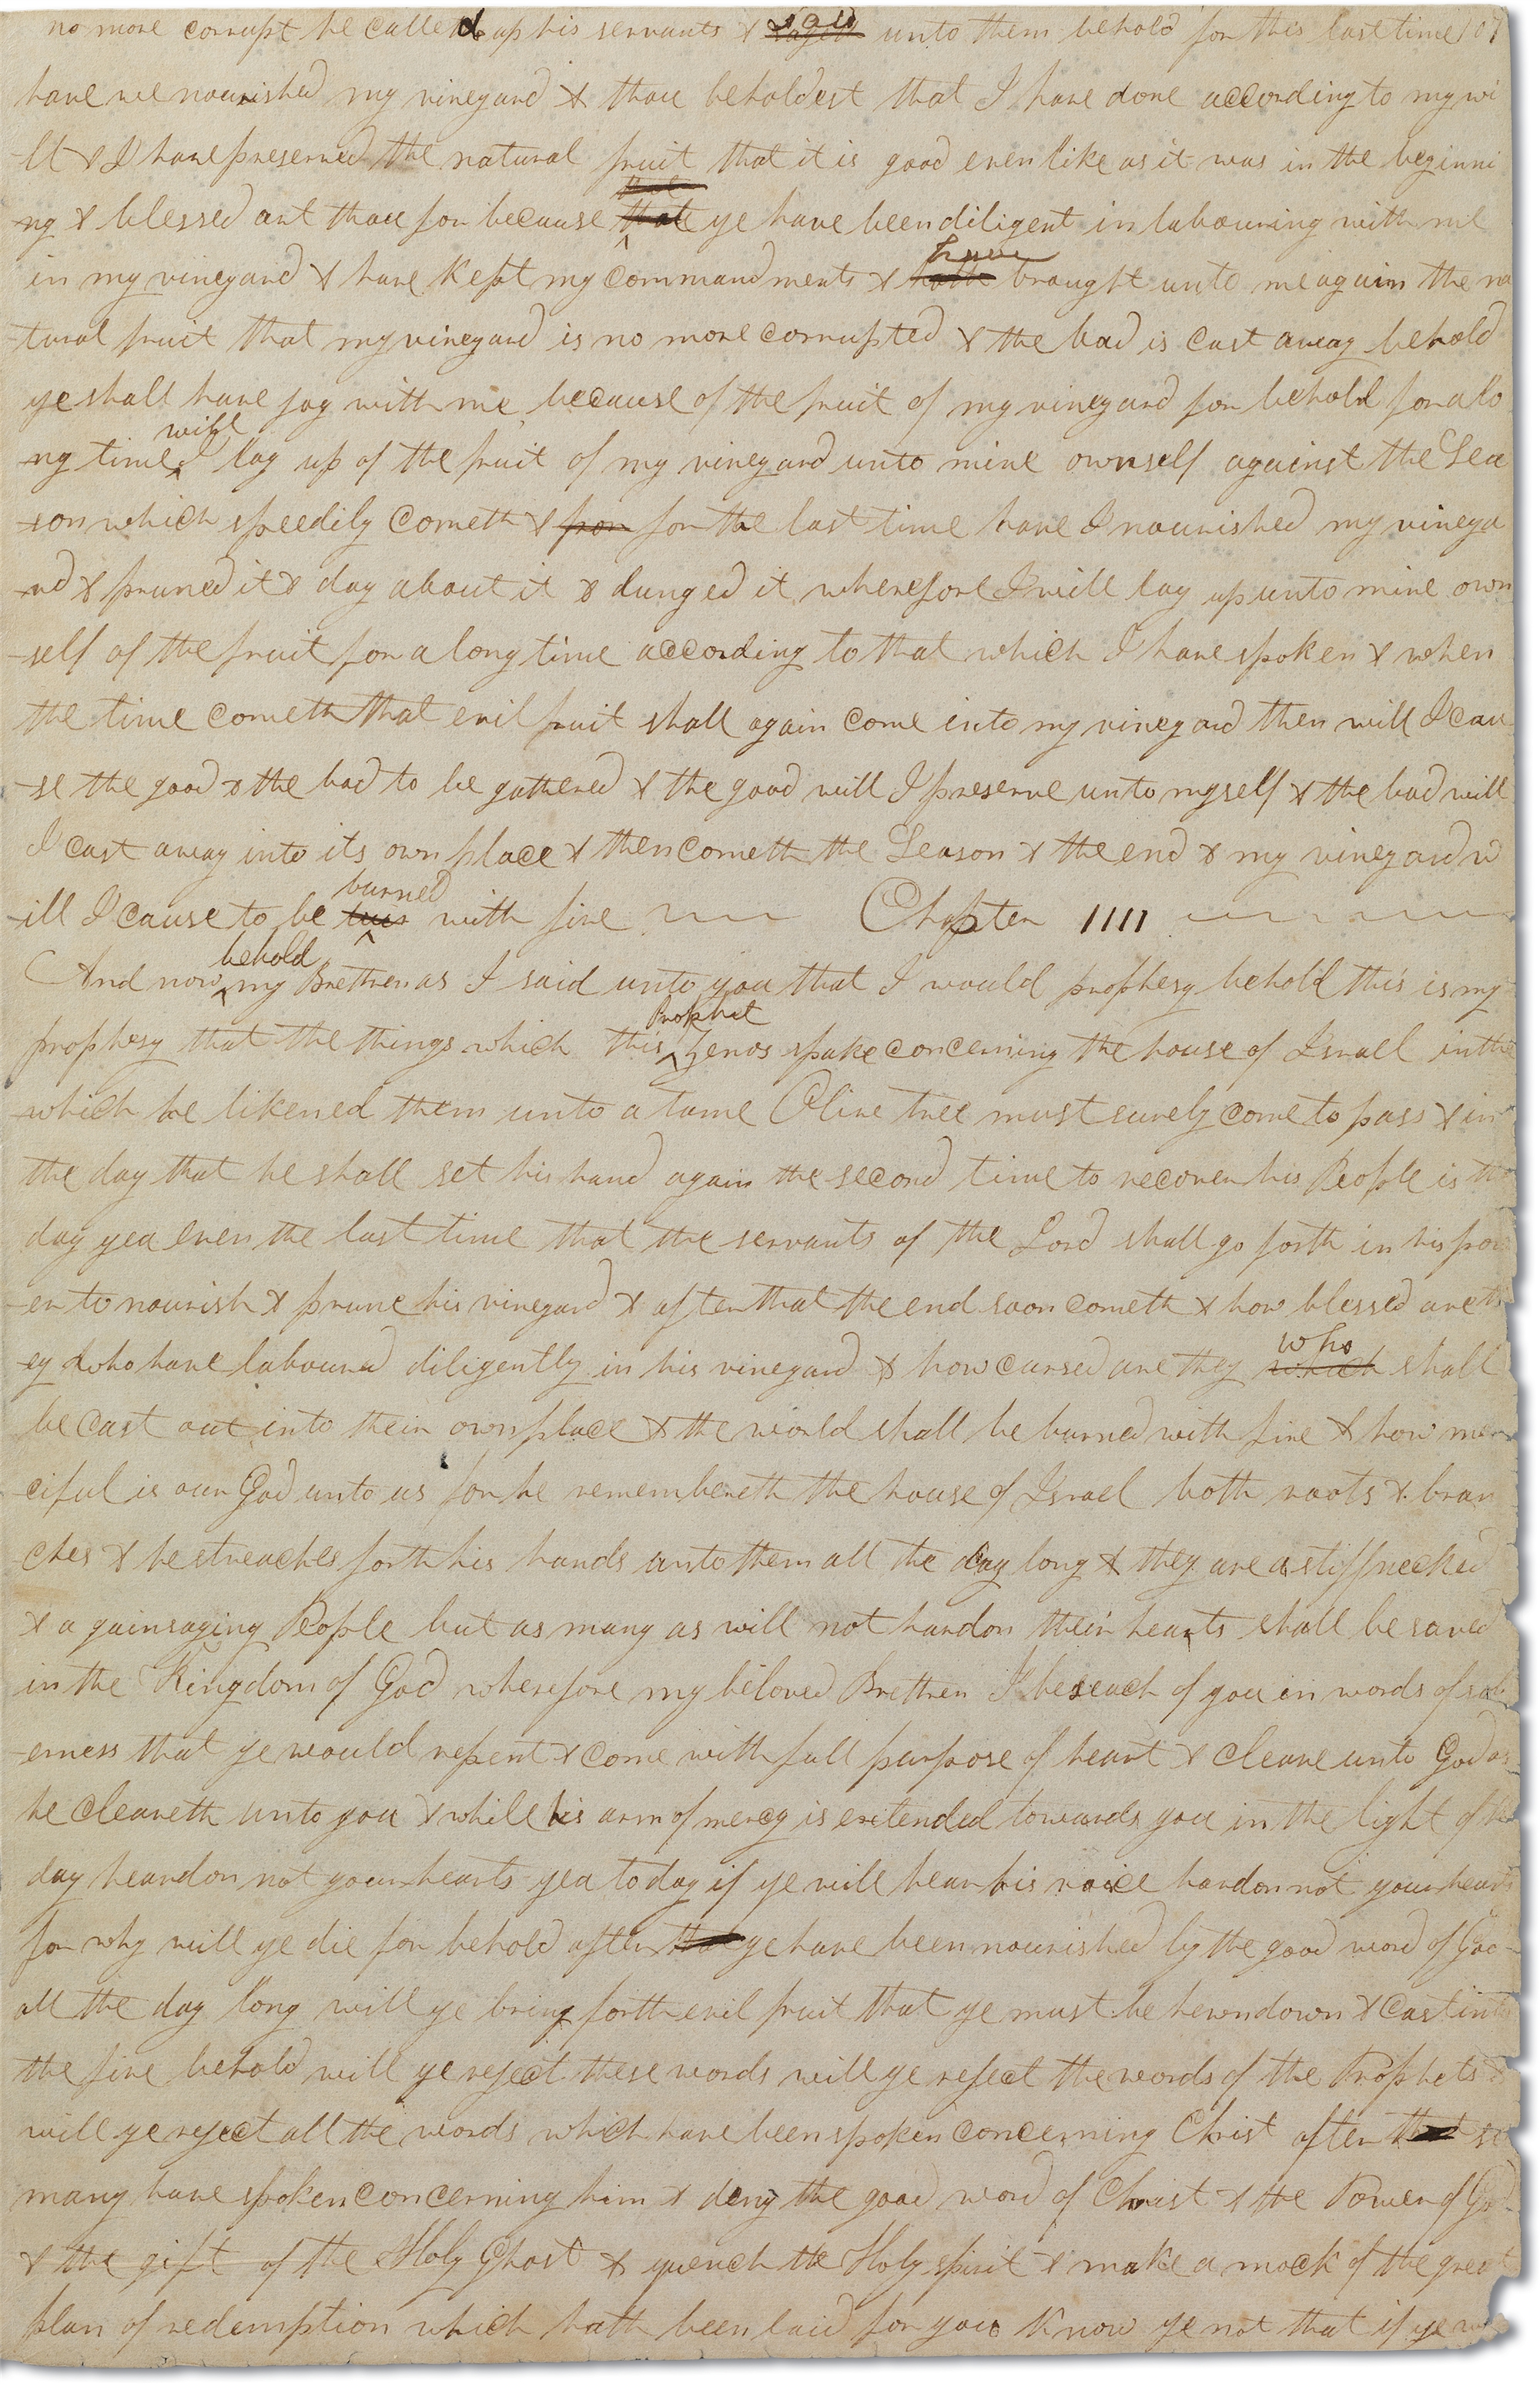 no more corrupt he called up his servants & said unto them behold for this last time 107
have we nourished my vineyard & thou beholdest that I have done according to my wi
-ll & I have preserved the natural fruit that it is good even like as it was in the beginni
-ng & blessed art thou for because that ye have been diligent in labouring with me
in my vineyard & have kept my commandments & have brought unto me again the na
-tural fruit that my vineyard is no more corrupted & the bad is cast away behold
ye shall have joy with me because of the fruit of my vineyard for behold for a lo
-ng time will I lay up of the fruit of my vineyard unto mine ownself against the Sea
-son which speedily cometh & for for the last time have I nourished my vineya
-rd & pruned it & dug about it & dunged it wherefore I will lay up unto mine own
-self of the fruit for a long time according to that which I have spoken & when
the time cometh that evil fruit shall again come into my vineyard then will I cau
-se the good & the bad to be gathered & the good will I preserve unto myself & the bad will
I cast away into its own place & then cometh the Season & the end & my vineyard w
-ill I cause to be burned with fire Chapter IIII
And now behold my Brethren as I said unto you that I would prophesy behold this is my
prophesy that the things which this Prophet Zenos spake concerning the house of Israel in the
which he likened them unto a tame Olive tree must surely come to pass & in
the day that he shall set his hand again the second time to recover his People is the
day yea even the last time that the servants of the Lord shall go forth in his pow
-er to nourish & prune his vineyard & after that the end soon cometh & how blessed are th
-ey who have laboured diligently in his vineyard & how cursed are they which who shall
be cast out into their own place & the world shall be burned with fire & how mer
ciful is our God unto us for he remembereth the house of Israel both roots & bran
ches & he streaches forth his hands unto them all the day long & they are a stiffnecked
& a gainsaying People but as many as will not hardon their hearts shall be saved
in the Kingdom of God wherefore my beloved Brethren I beseech of you in words of sob
-erness that ye would repent & come with full purpose of heart & cleave unto God as
he cleaveth unto you & while his arm of mercy is extended towards you in the light of the
day heardon not your hearts yea to day if ye will hear his voice hardon not your hearts
for why will ye die for behold after that ye have been nourished by the good word of God
all the day long will ye bring forth evil fruit that ye must be hewn down & cast into
the fire behold will ye reject these words will ye reject the words of the Prophets &
will ye reject all the words which have been spoken concerning Christ after that so
many have spoken concerning him & deny the good word of Christ & the Power of God
& the gift of the Holy Ghost & quench the Holy spirit & make a mock of the great
plan of redemption which hath been laid for you Know ye not that if ye